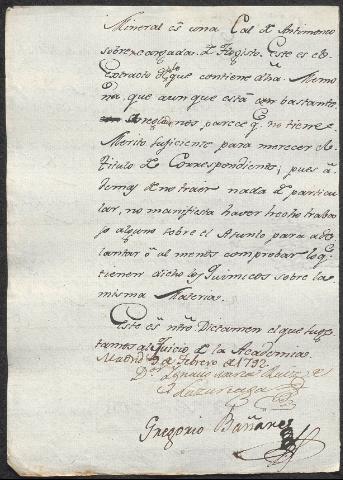 Mineral es una Cal de Antimonio
sobrecargada de Flogisto. Este es el
Extracto de lo que contiene dha. Memo
ria, que aunque está con bastante
arreglo nos parece q. no tiene
Merito suficiente para merecer el
Titulo de Correspondiente; pues a
demas de no traer nada de particu
lar, no manifiesta haver hecho traba
jo alguno sobre el Asunto para ade
lantar o al menos comprobar lo q.
tienen dicho los Quimicos sobre la
misma Materia.
Este es ntro. Dictamen el que suge
tamos al Juicio de la Academia.
Madrid de Febrero de 1792
Dor. Ignacio Maria Ruiz de
Luzuriaga
Gregorio Bañares